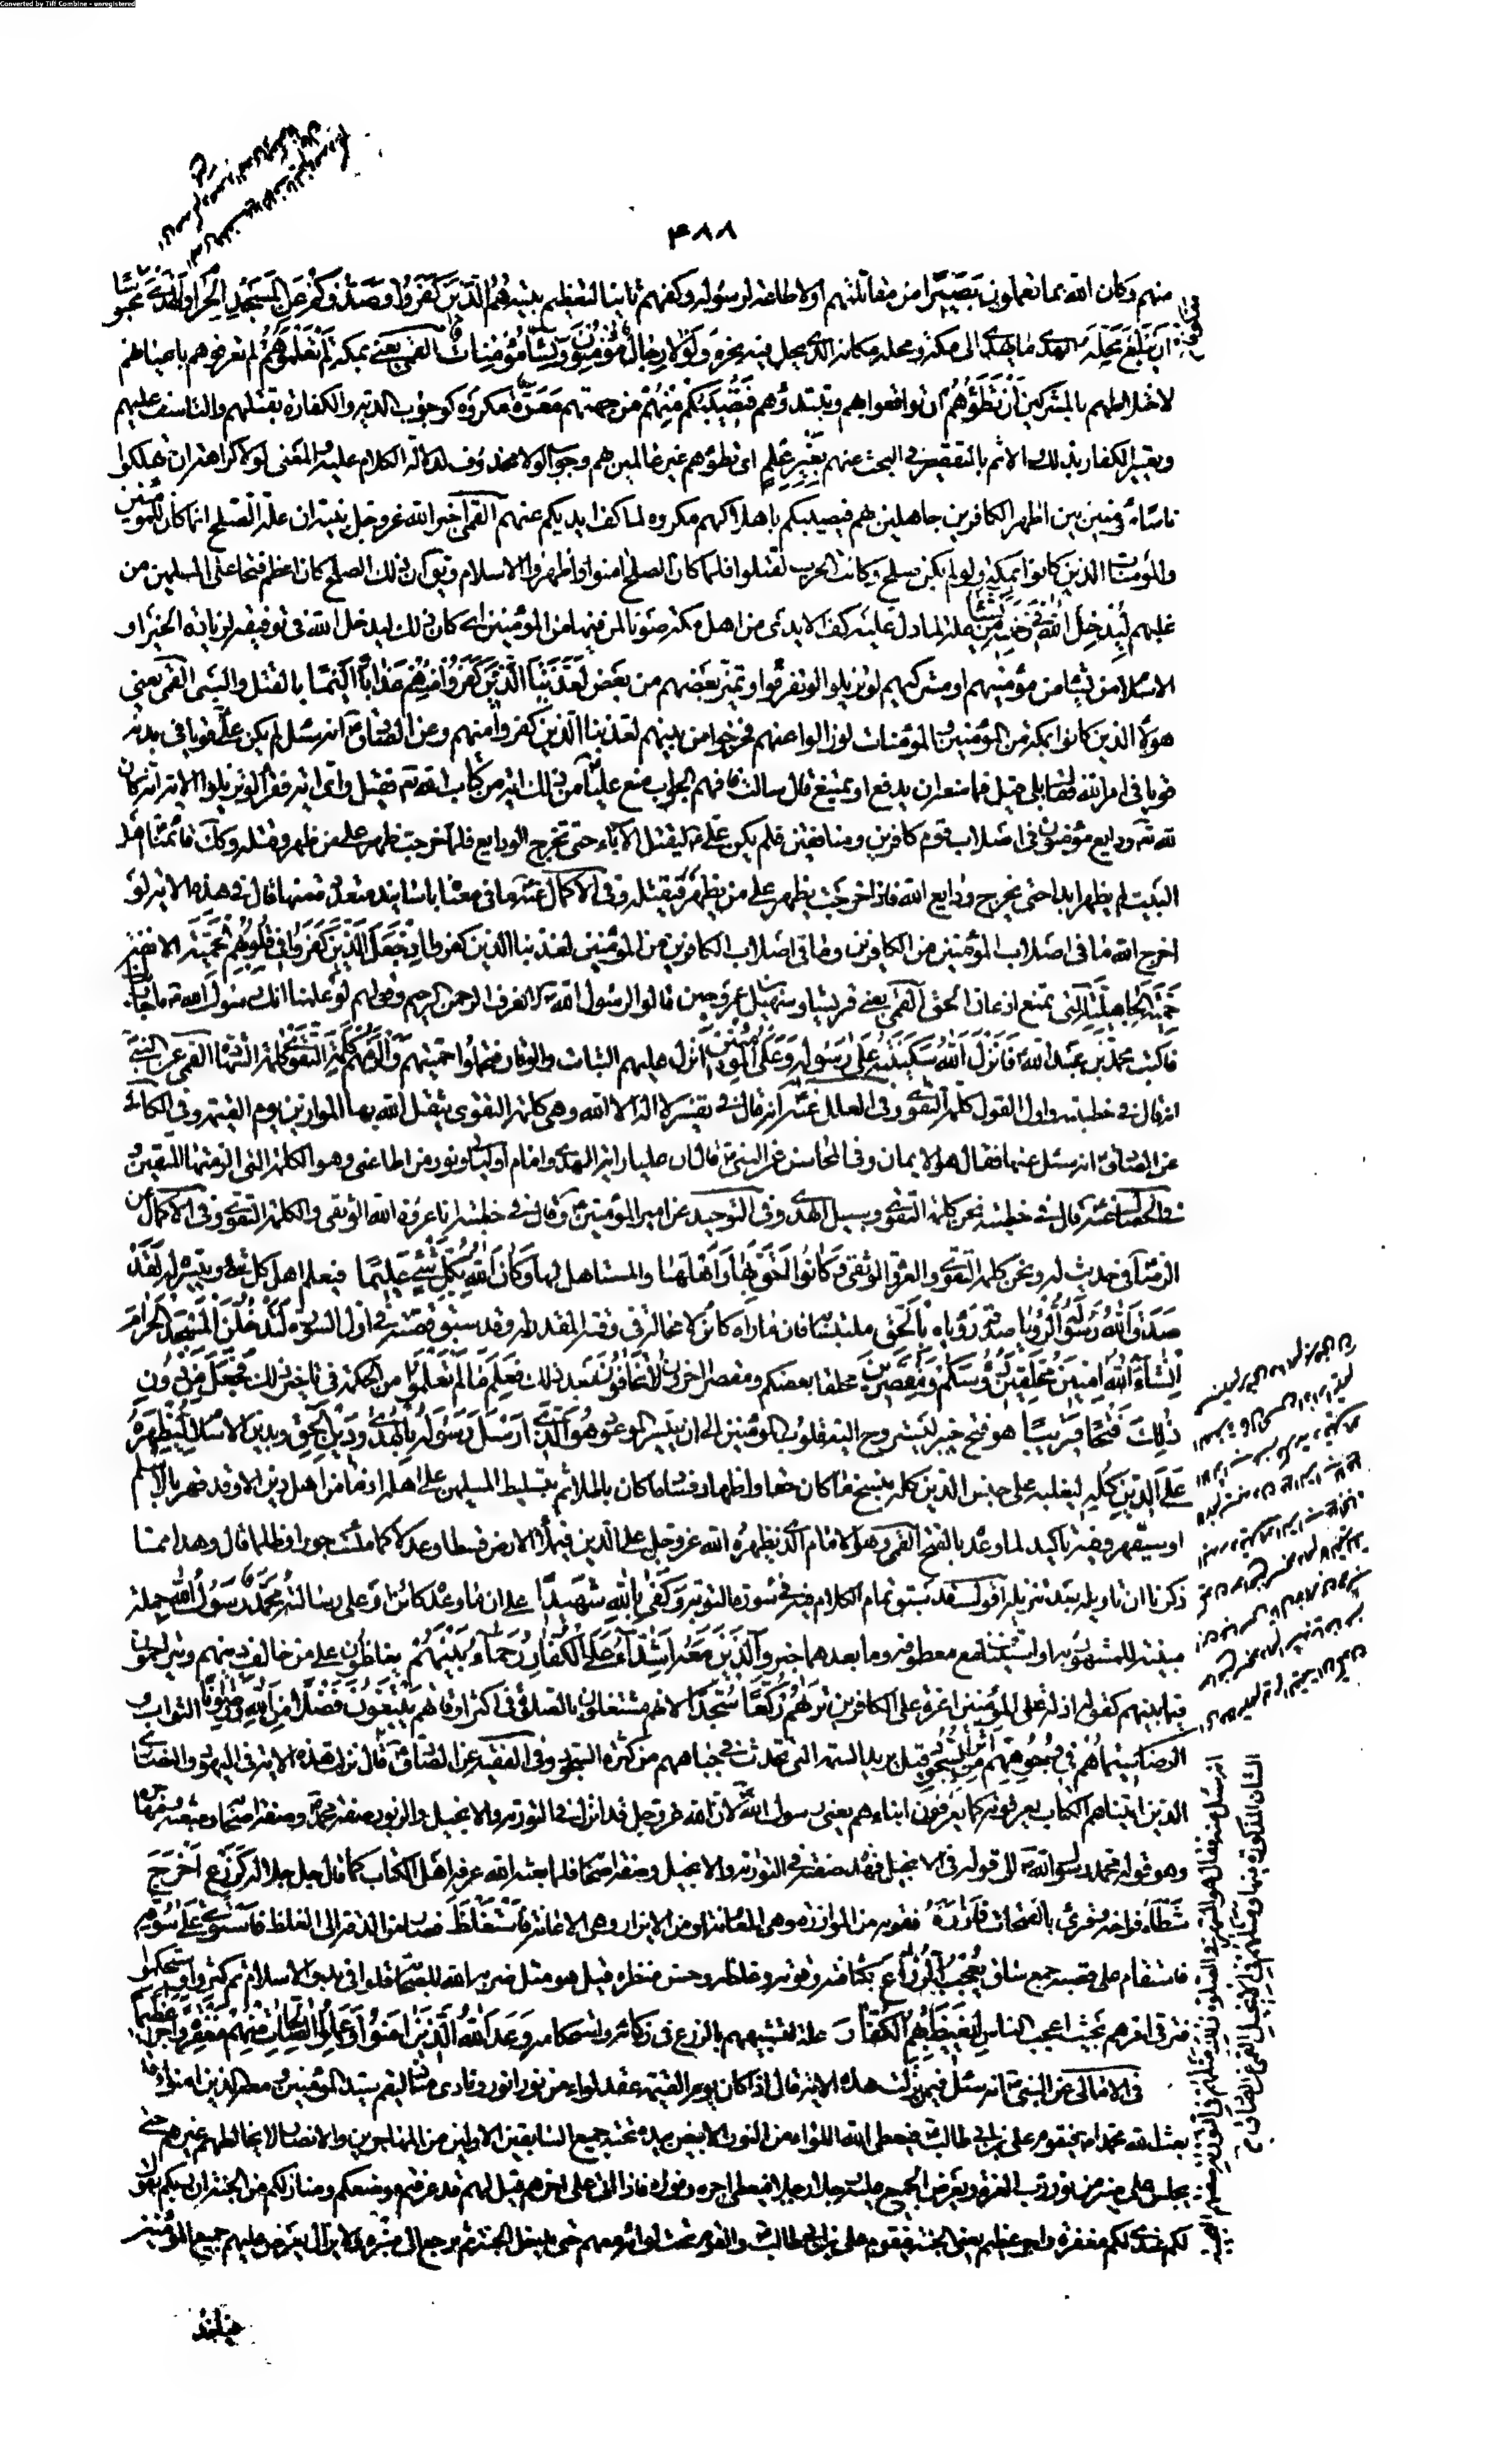 Converted by Tiff Combine - unregistered
۴۸۸
منهم وكان الله بما تعملون بصيرا من مقاتلتهم اولا طاعة لرسوله وكفهم ثانيا لتعظيم بيته هم الذين كفروا وصدوكم عن المسجد الحرام والهدى معكوفا
ان يبلغ محله الهدى ما يهدى الى مكة ومحله مكانه الذى يحل فيه نحره ولولا رجال مؤمنون ونساء مؤمنات القمى يعنى بمكة لم تعلموهم لم تعرفوهم باعيانهم
لاختلاطهم بالمشركين ان تطؤهم ان تواقعوا بهم وتبتدؤهم فتصيبكم منهم من جهتهم معرة مكروه كوجوب الدية والكفارة بقتلهم والتاسف عليهم
وتعيير الكفار بذلك والاثم بالتقصير فى البحث عنهم بغير علم اى تطؤهم غير عالمين بهم وجواب لولا محذوف لدلالة الكلام عليه والمعنى لولا كراهة ان تهلكوا
ناسا مؤمنين بين اظهر الكافرين جاهلين بهم فيصيبكم باهلاكهم مكروه لما كف ايديكم عنهم القمى اخبر الله عز وجل نبيه ان علة الصلح انما كان للمؤمنين
والمؤمنات الذين كانوا بمكة ولو لم يكن صلح وكانت الحرب لقتلوا فلما كان الصلح امنوا واظهروا الاسلام ويقال ان ذلك الصلح كان اعظم فتحا على المسلمين من
غلبهم ليدخل الله فى رحمته من يشاء علة لما دل عليه كف الايدى من اهل مكة صونا لمن فيها من المؤمنين اى كان ذلك ليدخل الله فى توفيقه لزيادة الخير او
الاسلام من يشاء من مؤمنيهم او مشركيهم لو تزيلوا لو تفرقوا وتميز بعضهم من بعض لعذبنا الذين كفروا منهم عذابا اليما بالقتل والسبى القمى يعنى
هؤلاء الذين كانوا بمكة من المؤمنين والمؤمنات لو زالوا عنهم فخرجوا من بينهم لعذبنا الذين كفروا منهم وعن الصادق انه سئل لم يكن على قويا فى بدنه
قويا فى امر الله فقال بلى قيل فما منعه ان يدفع او يمتنع قال سالت فافهم الجواب منع عليا من ذلك اية من كتاب الله تع فقيل واى اية فقرا لو تزيلوا الاية انه كان
لله تع ودايع مؤمنون فى اصلاب قوم كافرين ومنافقين فلم يكن على ليقتل الاباء حتى تخرج الودايع فلما خرجت ظهر على من ظهر وقتله وكذلك قائمنا اهل
البيت لم يظهر ابدا حتى تخرج ودايع الله فاذا خرجت يظهر على من يظهر فيقتله وفى الاكمال عنه ما فى معناه باسانيد متعددة منها قال فى هذه الاية لو
اخرج الله ما فى اصلاب المؤمنين من الكافرين وما فى اصلاب الكافرين من المؤمنين لعذبنا الذين كفروا اذ جعل الذين كفروا فى قلوبهم الحمية الانفة
حمية الجاهلية التى تمنع اذعان الحق القمى يعنى قريشا وسهيل بن عمرو حين قالوا لرسول الله لا نعرف الرحمن الرحيم وقولهم لو علمنا انك رسول الله ما حاربناك
فاكتب محمد بن عبد الله فانزل الله سكينته على رسوله وعلى المؤمنين انزل عليهم الثبات والوقار فتحملوا حميتهم والزمهم كلمة التقوى كلمة الشهادة القمى عن النبى
انه قال فى خطبته واولى القول كلمة التقوى وفى العلل عنه انه قال فى تفسير لا اله الا الله وهى كلمة التقوى يثقل الله بها الموازين يوم القيمة وفى الكافى
عن الصادق انه سئل عنها فقال هو الايمان وفى المجالس عن النبى قال ان عليا راية الهدى وامام اوليائى ونور من اطاعنى وهو الكلمة التى الزمتها المتقين
فى الخصال عنه قال فى خطبته نحن كلمة التقوى وسبيل الهدى وفى التوحيد عن امير المؤمنين وقال فى خطبته انا عروة الله الوثقى وكلمة التقوى وفى الاكمال عن
الرضا فى حديث له ونحن كلمة التقوى والعروة الوثقى وكانوا احق بها واهلها والمستاهل لها وكان الله بكل شئ عليما فيعلم اهل كل شئ وييسره له لقد
صدق الله رسوله الرؤيا صدقه فى رؤياه بالحق ملتبسا فان ما راه كائن لا محالة فى وقته المقدر له وقد سبق قصته فى اول السورة لتدخلن المسجد الحرام
انشاء الله امنين محلقين رؤسكم ومقصرين محلقا بعضكم ومقصرا اخرون لا تخافون بعد ذلك فعلم ما لم تعلموا من الحكمة فى تاخير ذلك فجعل من دون
ذلك فتحا قريبا هو فتح خيبر ليستروح اليه قلوب المؤمنين الى ان يتيسر الموعود هو الذى ارسل رسوله بالهدى ودين الحق وبدين الاسلام ليظهره
على الدين كله ليغلبه على جنس الدين كله بنسخ ما كان حقا واظهار فساد ما كان باطلا ثم بتسليط المسلمين على اهله اذ ما من اهل دين الا وقد قهر بالاسلام
او سيقهر وفيه تاكيد لما وعده بالفتح القمى وهو الامام الذى يظهره الله عز وجل على الدين فيملأ الارض قسطا وعدلا كما ملئت جورا وظلما قال وهذا مما
ذكرنا ان تاويله بعد تنزيله اقول قد سبق تمام الكلام فيه فى سورة التوبة وكفى بالله شهيدا على ان ما وعده كائن او على رسالته محمد رسول الله جملة
مبينة للمشهود به او استيناف مع معطوفه وما بعدهما خبر والذين معه اشداء على الكفار رحماء بينهم يغلظون على من خالف دينهم ويتراحمون
فيما بينهم كقوله اذلة على المؤمنين اعزة على الكافرين تريهم ركعا سجدا لانهم مشتغلون بالصلوة فى اكثر اوقاتهم يبتغون فضلا من الله ورضوانا الثواب و
الرضا سيماهم فى وجوههم من اثر السجود قيل يريد السمة التى تحدث فى جباههم من كثرة السجود وفى الفقيه عن الصادق قال نزلت هذه الاية فى اليهود والنصارى
الذين اتيناهم الكتاب يعرفونه كما يعرفون ابناءهم يعنى رسول الله لان الله عز وجل قد انزل فى التورية والانجيل والزبور صفة محمد وصفة اصحابه ومبعثه ومهاجره
وهو قوله محمد رسول الله الى قوله فى الانجيل فهذه صفته فى التورية والانجيل وصفة اصحابه فلما بعثه الله عرفه اهل الكتاب كما قال جل جلاله كزرع اخرج
شطأه فراخه وقرئ بالفتحات فازره فقويه من الموازرة وهى المعاونة او من الايزار وهى الاعانة فاستغلظ فصار من الدقة الى الغلظ فاستوى على سوقه
فاستقام على قصبه جمع ساق يعجب الزراع بكثافته وقوته وغلظه وحسن منظره قيل هو مثل ضربه الله للصحابة قلوا فى بدو الاسلام ثم كثروا واستحكموا
فترقى امرهم بحيث اعجب الناس ليغيظ بهم الكفار علة لتشبيههم بالزرع فى زكائه واستحكامه وعد الله الذين امنوا وعملوا الصالحات منهم مغفرة واجرا عظيما
فى الامالى عن النبى انه سئل فيمن نزلت هذه الاية قال اذا كان يوم القيمة عقد لواء من نور انور ونادى مناد ليقم سيد المؤمنين ومعه الذين امنوا وقد
بعث الله محمدا فيقوم على بن ابى طالب فيعطى الله اللواء من النور الابيض بيده تحته جميع السابقين الاولين من المهاجرين والانصار لا يخالطهم غيرهم حتى
يجلس على منبر من نور رب العزة ويعرض الجميع عليه رجلا رجلا فيعطى اجره ونوره فاذا اتى على اخرهم قيل لهم قد عرفتم موضعكم ومنازلكم من الجنة ان ربكم يقول
لكم عندى لكم مغفرة واجر عظيم يعنى الجنة فيقوم على بن ابى طالب والقوم تحت لوائه معهم حتى يدخل الجنة ثم يرجع الى منبره ولا يزال يعرض عليهم جميع المؤمنين